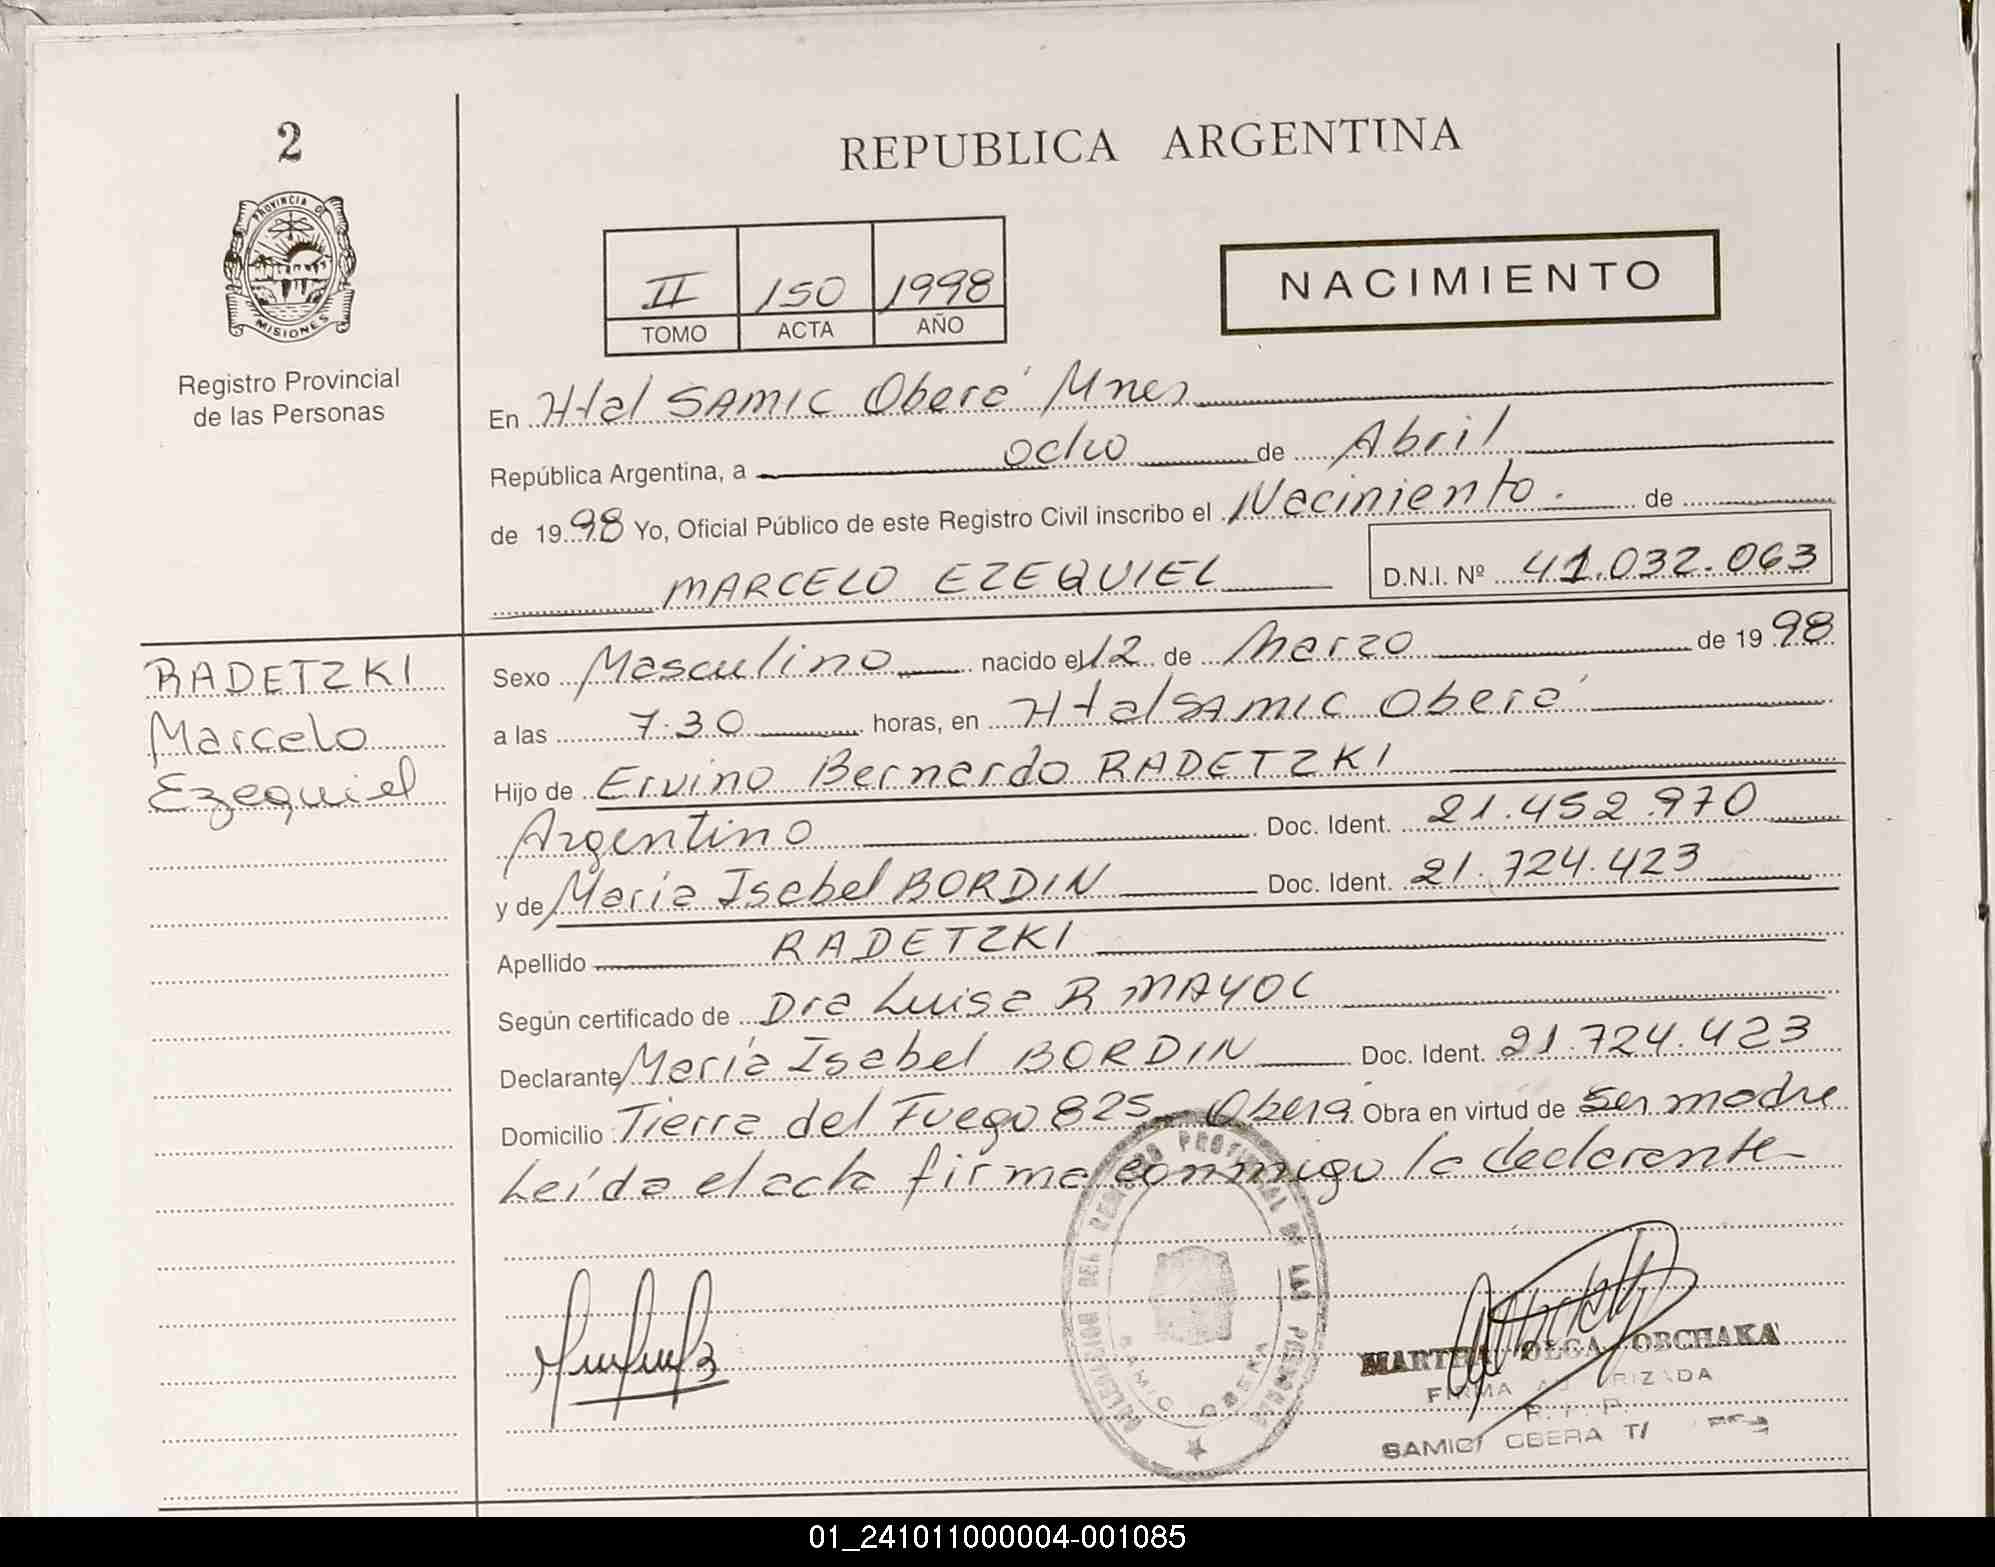 2
PROVINCIA DE
MISIONES
Registro Provincial
de las Personas
REPUBLICA ARGENTINA
II 150 1998
TOMO ACTA AÑO
NACIMIENTO
En Htal SAMIC Oberá Mnes
República Argentina, a ocho de Abril
de 1998 Yo, Oficial Público de este Registro Civil inscribo el Nacimiento. de
MARCELO EZEQUIEL D.N.I. Nº 41.032.063
RADETZKI
Marcelo
Ezequiel
Sexo Masculino nacido el 12 de Marzo de 1998
a las 7.30 horas, en Htal SAMIC Oberá
Hijo de Ervino Bernardo RADETZKI
Argentino Doc. Ident. 21.452.970
y de María Isabel BORDIN Doc. Ident. 21.724.423
Apellido RADETZKI
Según certificado de Dra Luisa R MAYOL
Declarante María Isabel BORDIN Doc. Ident. 21.724.423
Domicilio Tierra del Fuego 825 Oberá Obra en virtud de ser madre
Leída el acta firma conmigo la declarante
DELEGACION DEL REGISTRO PROVINCIAL DE LAS PERSONAS
SAMIC OBERA
MARTHA OLGA OBCHAKA
FIRMA AUTORIZADA
R. P. P.
SAMIC OBERA T/
01_241011000004-001085